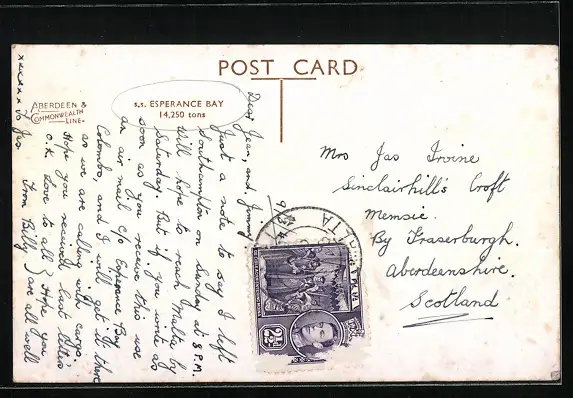 POST CARD
ABERDEEN &
COMMONWEALTH
LINE
S.S. ESPERANCE BAY
14,250 tons
Dear Jean, and Jimmy
Just a note to say I left
Southampton on Sunday at 8 P.M.
Will hope to reach Malta by
Saturday. But if you write as
soon as you receive this use
an air mail c/o Esperance Bay
Colombo, and I will get it there
as we are calling with cargo.
Hope you received last letters
O.K. Love to all } Hope you
From Billy } are all well
xxxxxx to Jas.
Mrs Jas Irvine
Sinclairhill's Croft
Memsie.
By Fraserburgh.
Aberdeenshire.
Scotland
MALTA
2½